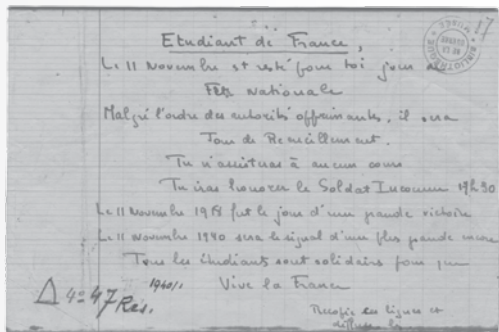 Etudiant de France,
Le 11 Novembre est resté pour toi jour de
Fête Nationale
Malgré l'ordre des autorités opprimantes, il sera
Jour de Recueillement.
Tu n'assisteras à aucun cours
Tu iras honorer le Soldat Inconnu 17h30
Le 11 Novembre 1918 fut le jour d'une grande victoire
Le 11 Novembre 1940 sera le signal d'une plus grande encore
Tous les étudiants sont solidaires pour que
Vive la France
Recopie ces lignes et
diffuse les
4° 47 Rés.
1940/1
BIBLIOTHEQUE
MUSEE